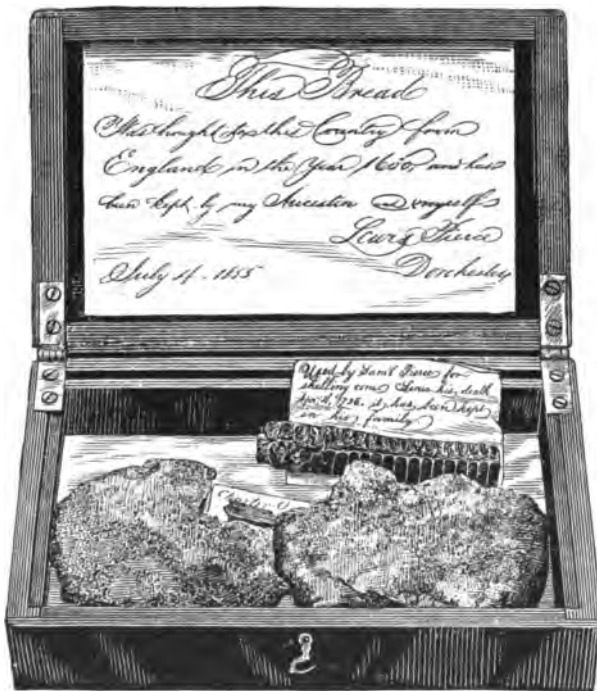 This Bread
Was brought to this Country from
England in the Year 1630, and has
been kept by my Ancestors and myself
Lewis Pierce
Dorchester
July 4. 1855
Used by Sam'l Pierce for
shelling corn Since his death
April, 1768. it has been kept
in his family
Charter O